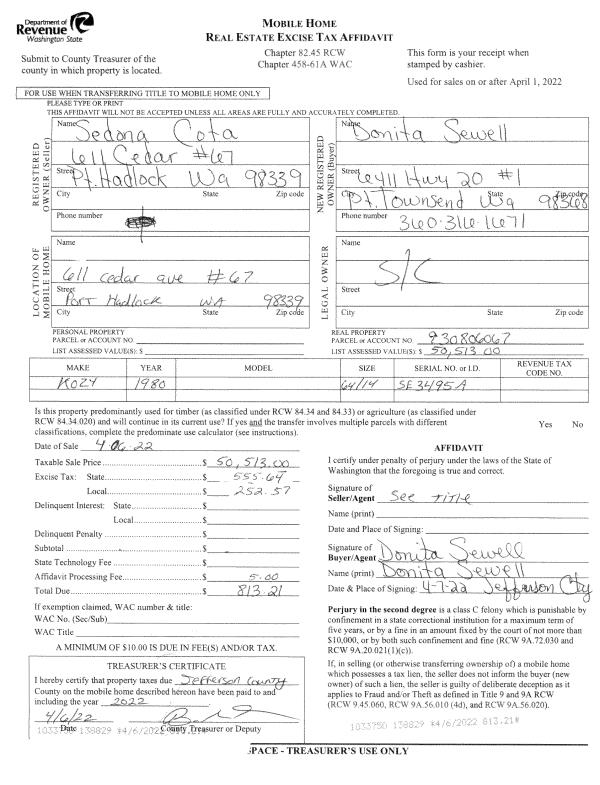 Department of
Revenue
Washington State
MOBILE HOME
REAL ESTATE EXCISE TAX AFFIDAVIT
Chapter 82.45 RCW
Chapter 458-61A WAC
Submit to County Treasurer of the
county in which property is located.
This form is your receipt when
stamped by cashier.
Used for sales on or after April 1, 2022
FOR USE WHEN TRANSFERRING TITLE TO MOBILE HOME ONLY
PLEASE TYPE OR PRINT
THIS AFFIDAVIT WILL NOT BE ACCEPTED UNLESS ALL AREAS ARE FULLY AND ACCURATELY COMPLETED.
REGISTERED
OWNER (Seller)
Name Sedona Cota
611 Cedar #67
Street Pt. Hadlock Wa 98339
City State Zip code
Phone number
NEW REGISTERED
OWNER (Buyer)
Name Donita Sewell
Street 6411 Hwy 20 #1
City Pt. Townsend State Wa Zip code 98368
Phone number 360-316-1671
LOCATION OF
MOBILE HOME
Name
611 cedar ave #67
Street
Port Hadlock WA 98339
City State Zip code
LEGAL OWNER
Name
S/C
Street
City State Zip code
PERSONAL PROPERTY
PARCEL or ACCOUNT NO.
LIST ASSESSED VALUE(S): $
REAL PROPERTY
PARCEL or ACCOUNT NO. 930806067
LIST ASSESSED VALUE(S): $ 50,513.00
MAKE YEAR MODEL SIZE SERIAL NO. or I.D. REVENUE TAX CODE NO.
KOZY 1980 64/14 SE3495A
Is this property predominantly used for timber (as classified under RCW 84.34 and 84.33) or agriculture (as classified under
RCW 84.34.020) and will continue in its current use? If yes and the transfer involves multiple parcels with different
classifications, complete the predominate use calculator (see instructions).
Yes No
Date of Sale 4.06.22
Taxable Sale Price $ 50,513.00
Excise Tax: State $ 555.64
Local $ 252.57
Delinquent Interest: State $
Local $
Delinquent Penalty $
Subtotal $
State Technology Fee $
Affidavit Processing Fee $ 5.00
Total Due $ 813.21
If exemption claimed, WAC number & title:
WAC No. (Sec/Sub)
WAC Title
A MINIMUM OF $10.00 IS DUE IN FEE(S) AND/OR TAX.
TREASURER'S CERTIFICATE
I hereby certify that property taxes due Jefferson County
County on the mobile home described hereon have been paid to and
including the year 2022
4/6/22
Date County Treasurer or Deputy
1033750 138829 #4/6/2022 813.21#
AFFIDAVIT
I certify under penalty of perjury under the laws of the State of
Washington that the foregoing is true and correct.
Signature of
Seller/Agent See Title
Name (print)
Date and Place of Signing:
Signature of
Buyer/Agent Donita Sewell
Name (print) Donita Sewell
Date & Place of Signing: 4-7-22 Jefferson Cty
Perjury in the second degree is a class C felony which is punishable by
confinement in a state correctional institution for a maximum term of
five years, or by a fine in an amount fixed by the court of not more than
$10,000, or by both such confinement and fine (RCW 9A.72.030 and
RCW 9A.20.021(1)(c)).
If, in selling (or otherwise transferring ownership of) a mobile home
which possesses a tax lien, the seller does not inform the buyer (new
owner) of such a lien, the seller is guilty of deliberate deception as it
applies to Fraud and/or Theft as defined in Title 9 and 9A RCW
(RCW 9.45.060, RCW 9A.56.010 (4d), and RCW 9A.56.020).
1033750 138829 #4/6/2022 813.21#
SPACE - TREASURER'S USE ONLY